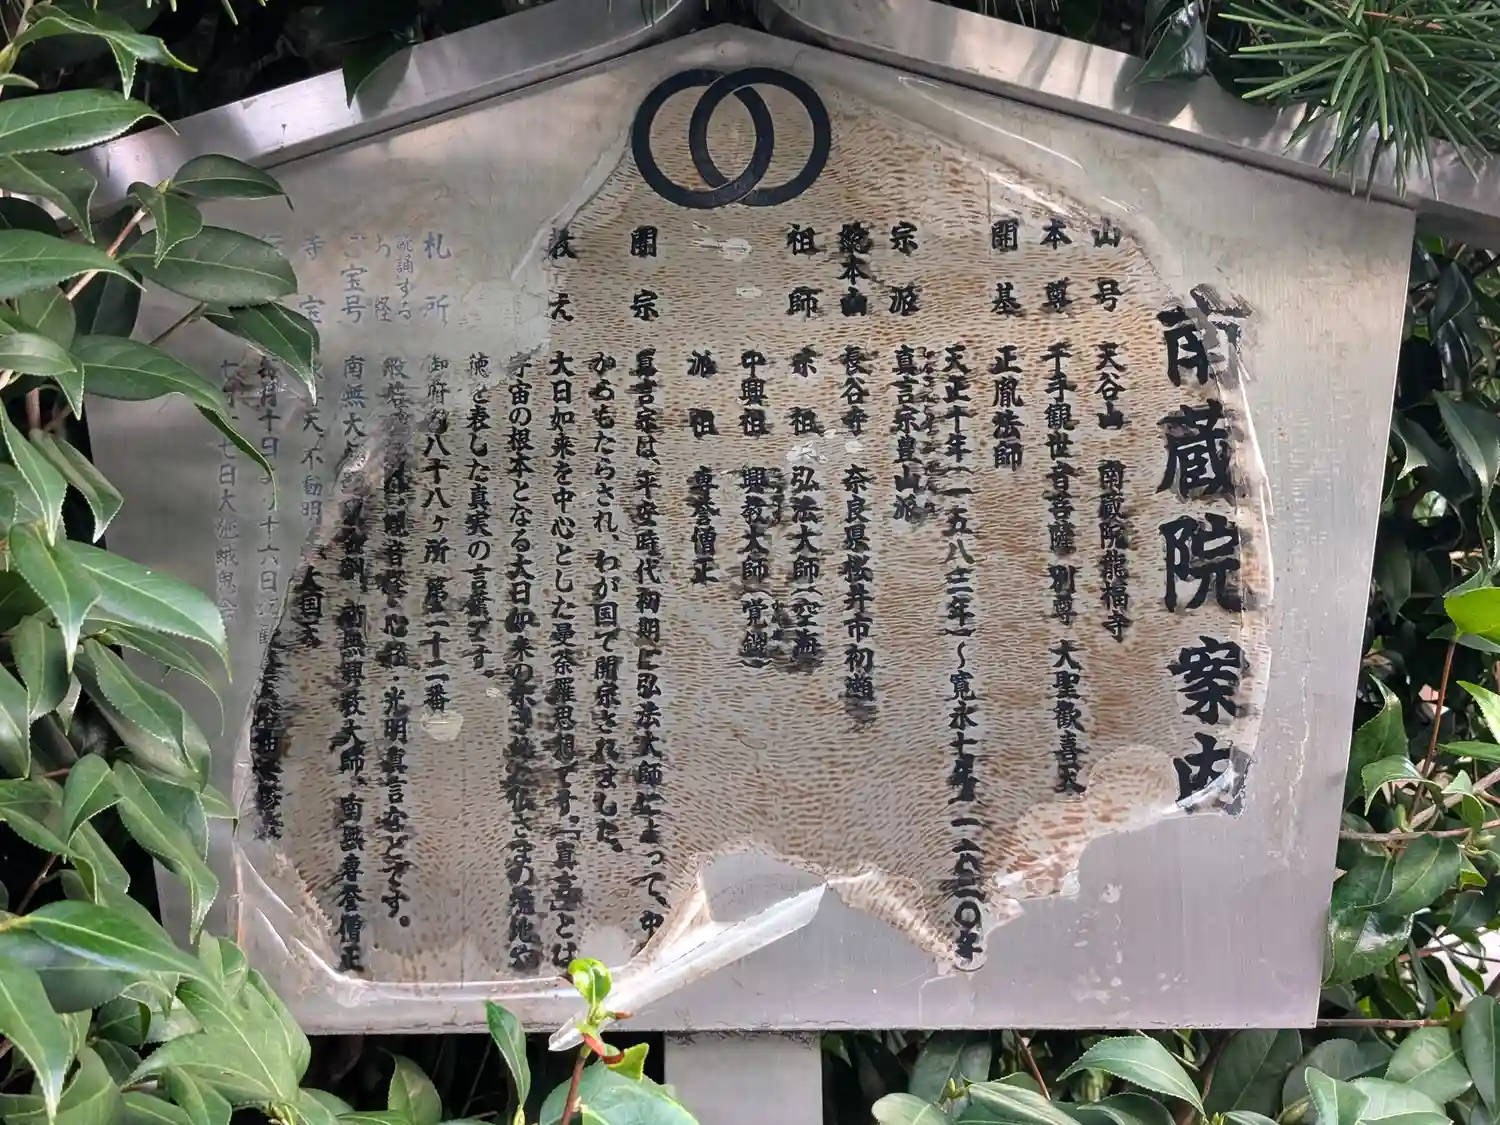 南蔵院 案内
山号 天谷山 南蔵院龍福寺
本尊 千手観世音菩薩 別尊 大聖歓喜天
開基 正胤法師
天正十年(一五八二年)~寛永七年(一六三〇年)
宗派 真言宗豊山派
総本山 長谷寺 奈良県桜井市初瀬
祖師 宗祖 弘法大師(空海)
中興祖 興教大師(覚鑁)
派祖 専誉僧正
開宗 真言宗は、平安時代初期に弘法大師によって、中
からもたらされ、わが国で開宗されました。
教え 大日如来を中心とした曼荼羅思想です。「真言」とは
宇宙の根本となる大日如来の
徳を表した真実の言葉です。
札所 御府内八十八ヶ所 第二十二番
読誦する
お経 般若 観音経・心経・光明真言などです。
ご宝号 南無大 南無興教大師、南無専誉僧正
寺宝 天、不動明 大国天
毎月十日より十六日
七月二十七日大施餓鬼会